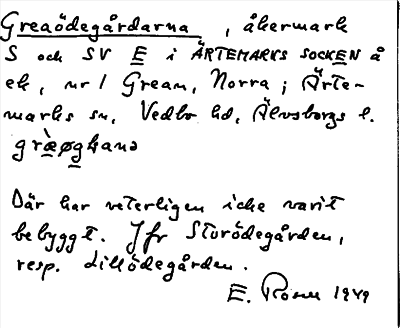 Greaödegårdarna, åkermark
S och SV E i ÄRTEMARKS SOCKEN å
ek, nr 1 Grean, Norra; Ärte-
marks sn, Vedbo hd, Älvsborgs l.
græ̀øgḷana
Där har veterligen icke varit
bebyggt. Jfr Storödegården,
resp. Lillödegården.
E. Rosen 1949